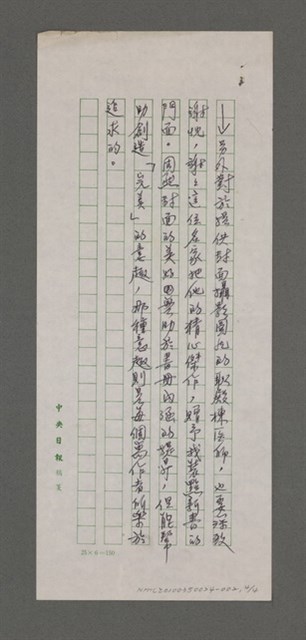 一五
另外對於提供封面攝影圖片的耿殿棟医师，也要深致
謝忱，謝謝這位名家把他的精心傑作，贈予我裝點新書的
門面。固然封面的美好毋助於書冊內涵的提昇，但能幫
助創造「完美」的意趣，那種意趣則是每個寫作者所樂於
追求的。
中央日報稿箋
25×6=150